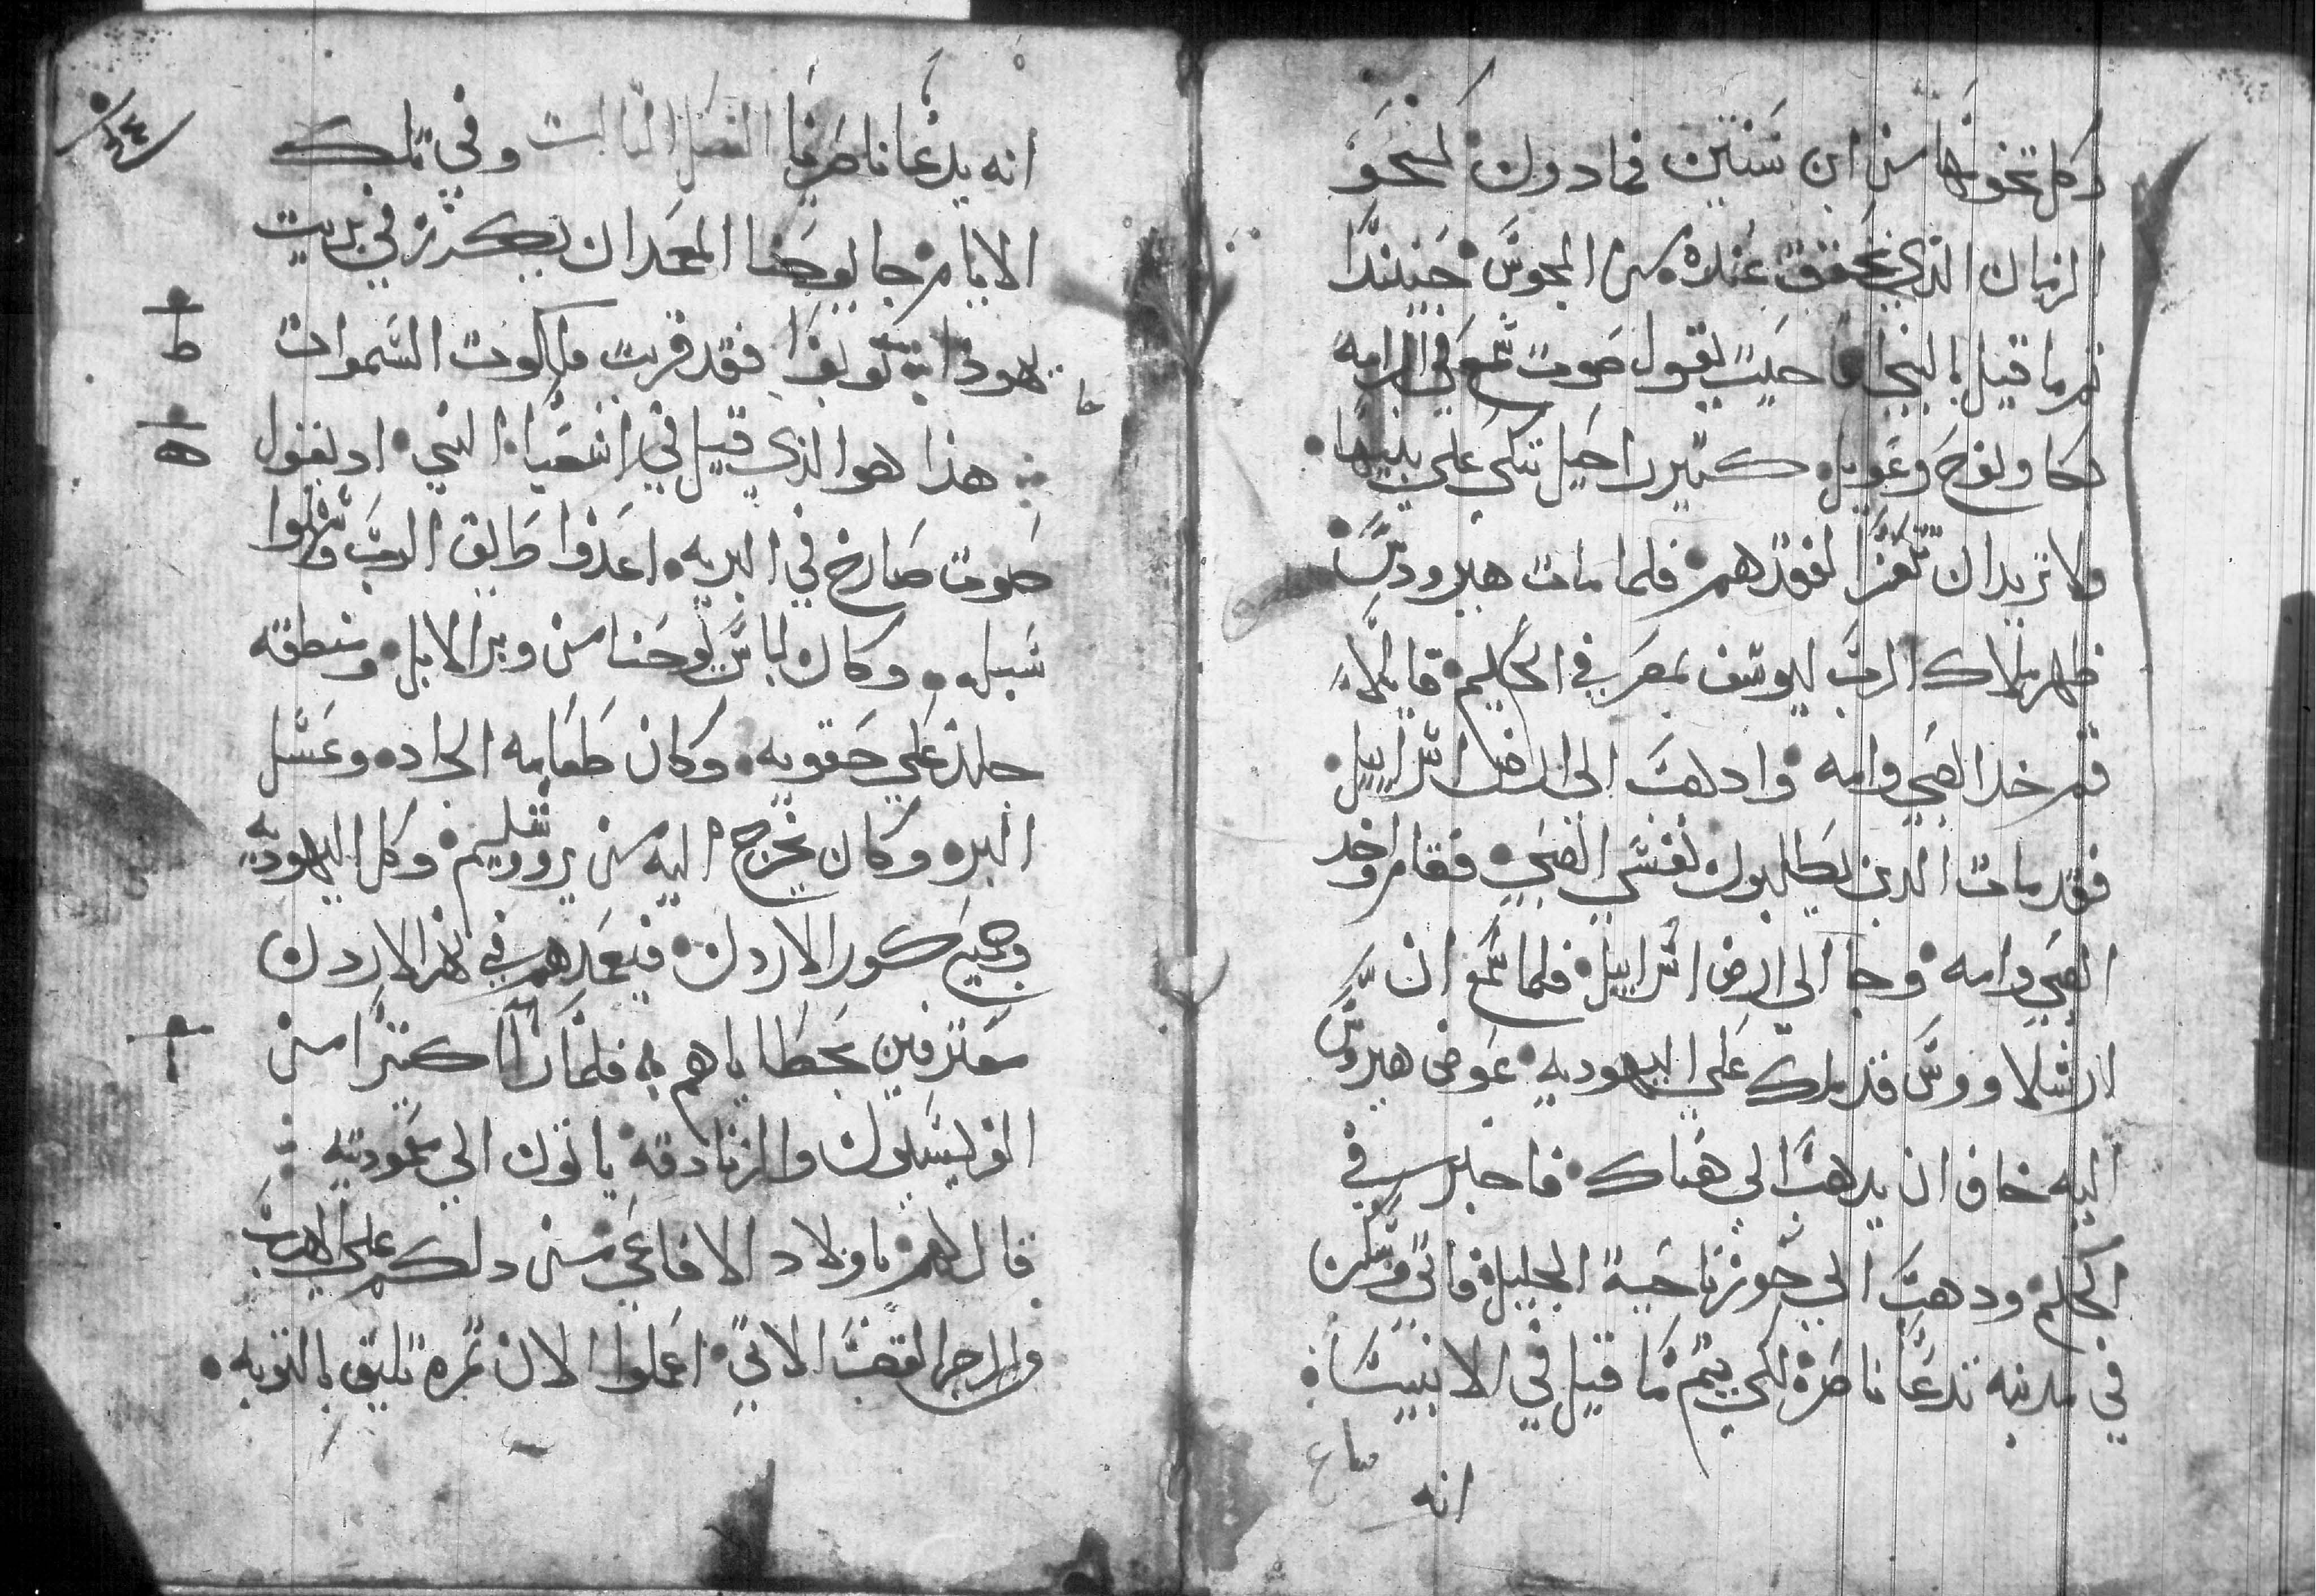 وكل تخومها من ابن سنتين فما دون كنحو
الزمان الذي تحقق عنده من المجوس حينيذا
تم ما قيل بالنبي حيث يقول صوت سمع في الرامه
بكا ونوح وعويل كثير راحيل تبكي علي بنيها
ولا تريد ان تتعزا لفقدهم فلما مات هيرودس
ظهر ملاك الرب ليوسف بمصر في الحلم قايلا
قم خد الصبي وامه وادهب الى ارض اسراييل
فقد مات الدين يطلبون نفس الصبي فقام واخد
الصبي وامه وجا الى ارض اسراييل فلما سمع ان
ارشلاووس قد ملك علي اليهوديه عوض هيرودس
ابيه خاف ان يدهب الى هناك فاخبر في
الحلم ودهب الي حوز ناحية الجليل فاتي وسكن
في مدينه تدعا ناصرة لكي يتم ما قيل في الانبيا
انه
انه يدعا ناصريا الفصل الثالث وفي تلك
الايام جا يوحنا المعمدان يكرز في بريت
يهودا توبوا فقد قربت ملكوت السموات
هذا هو الذي قيل في اشعيا النبي اد يقول
صوت صارخ في البريه اعدوا طريق الرب وسهلوا
سبله وكان لباس يوحنا من وبر الابل ومنطقه
جلد علي حقويه وكان طعامه الجراد وعسل
البر وكان يخرج اليه من يروشليم وكل اليهوديه
وجميع كور الاردن فيعمدهم في نهر الاردن
معترفين بخطاياهم فلما راا كثيرا من
الفريسيون والزنادقه ياتون الي معموديته
قال لهم يا ولاد الافاعي من دلكم علي الهرب
من الرجز الاتي اعملوا الان ثمره تليق بالتوبه